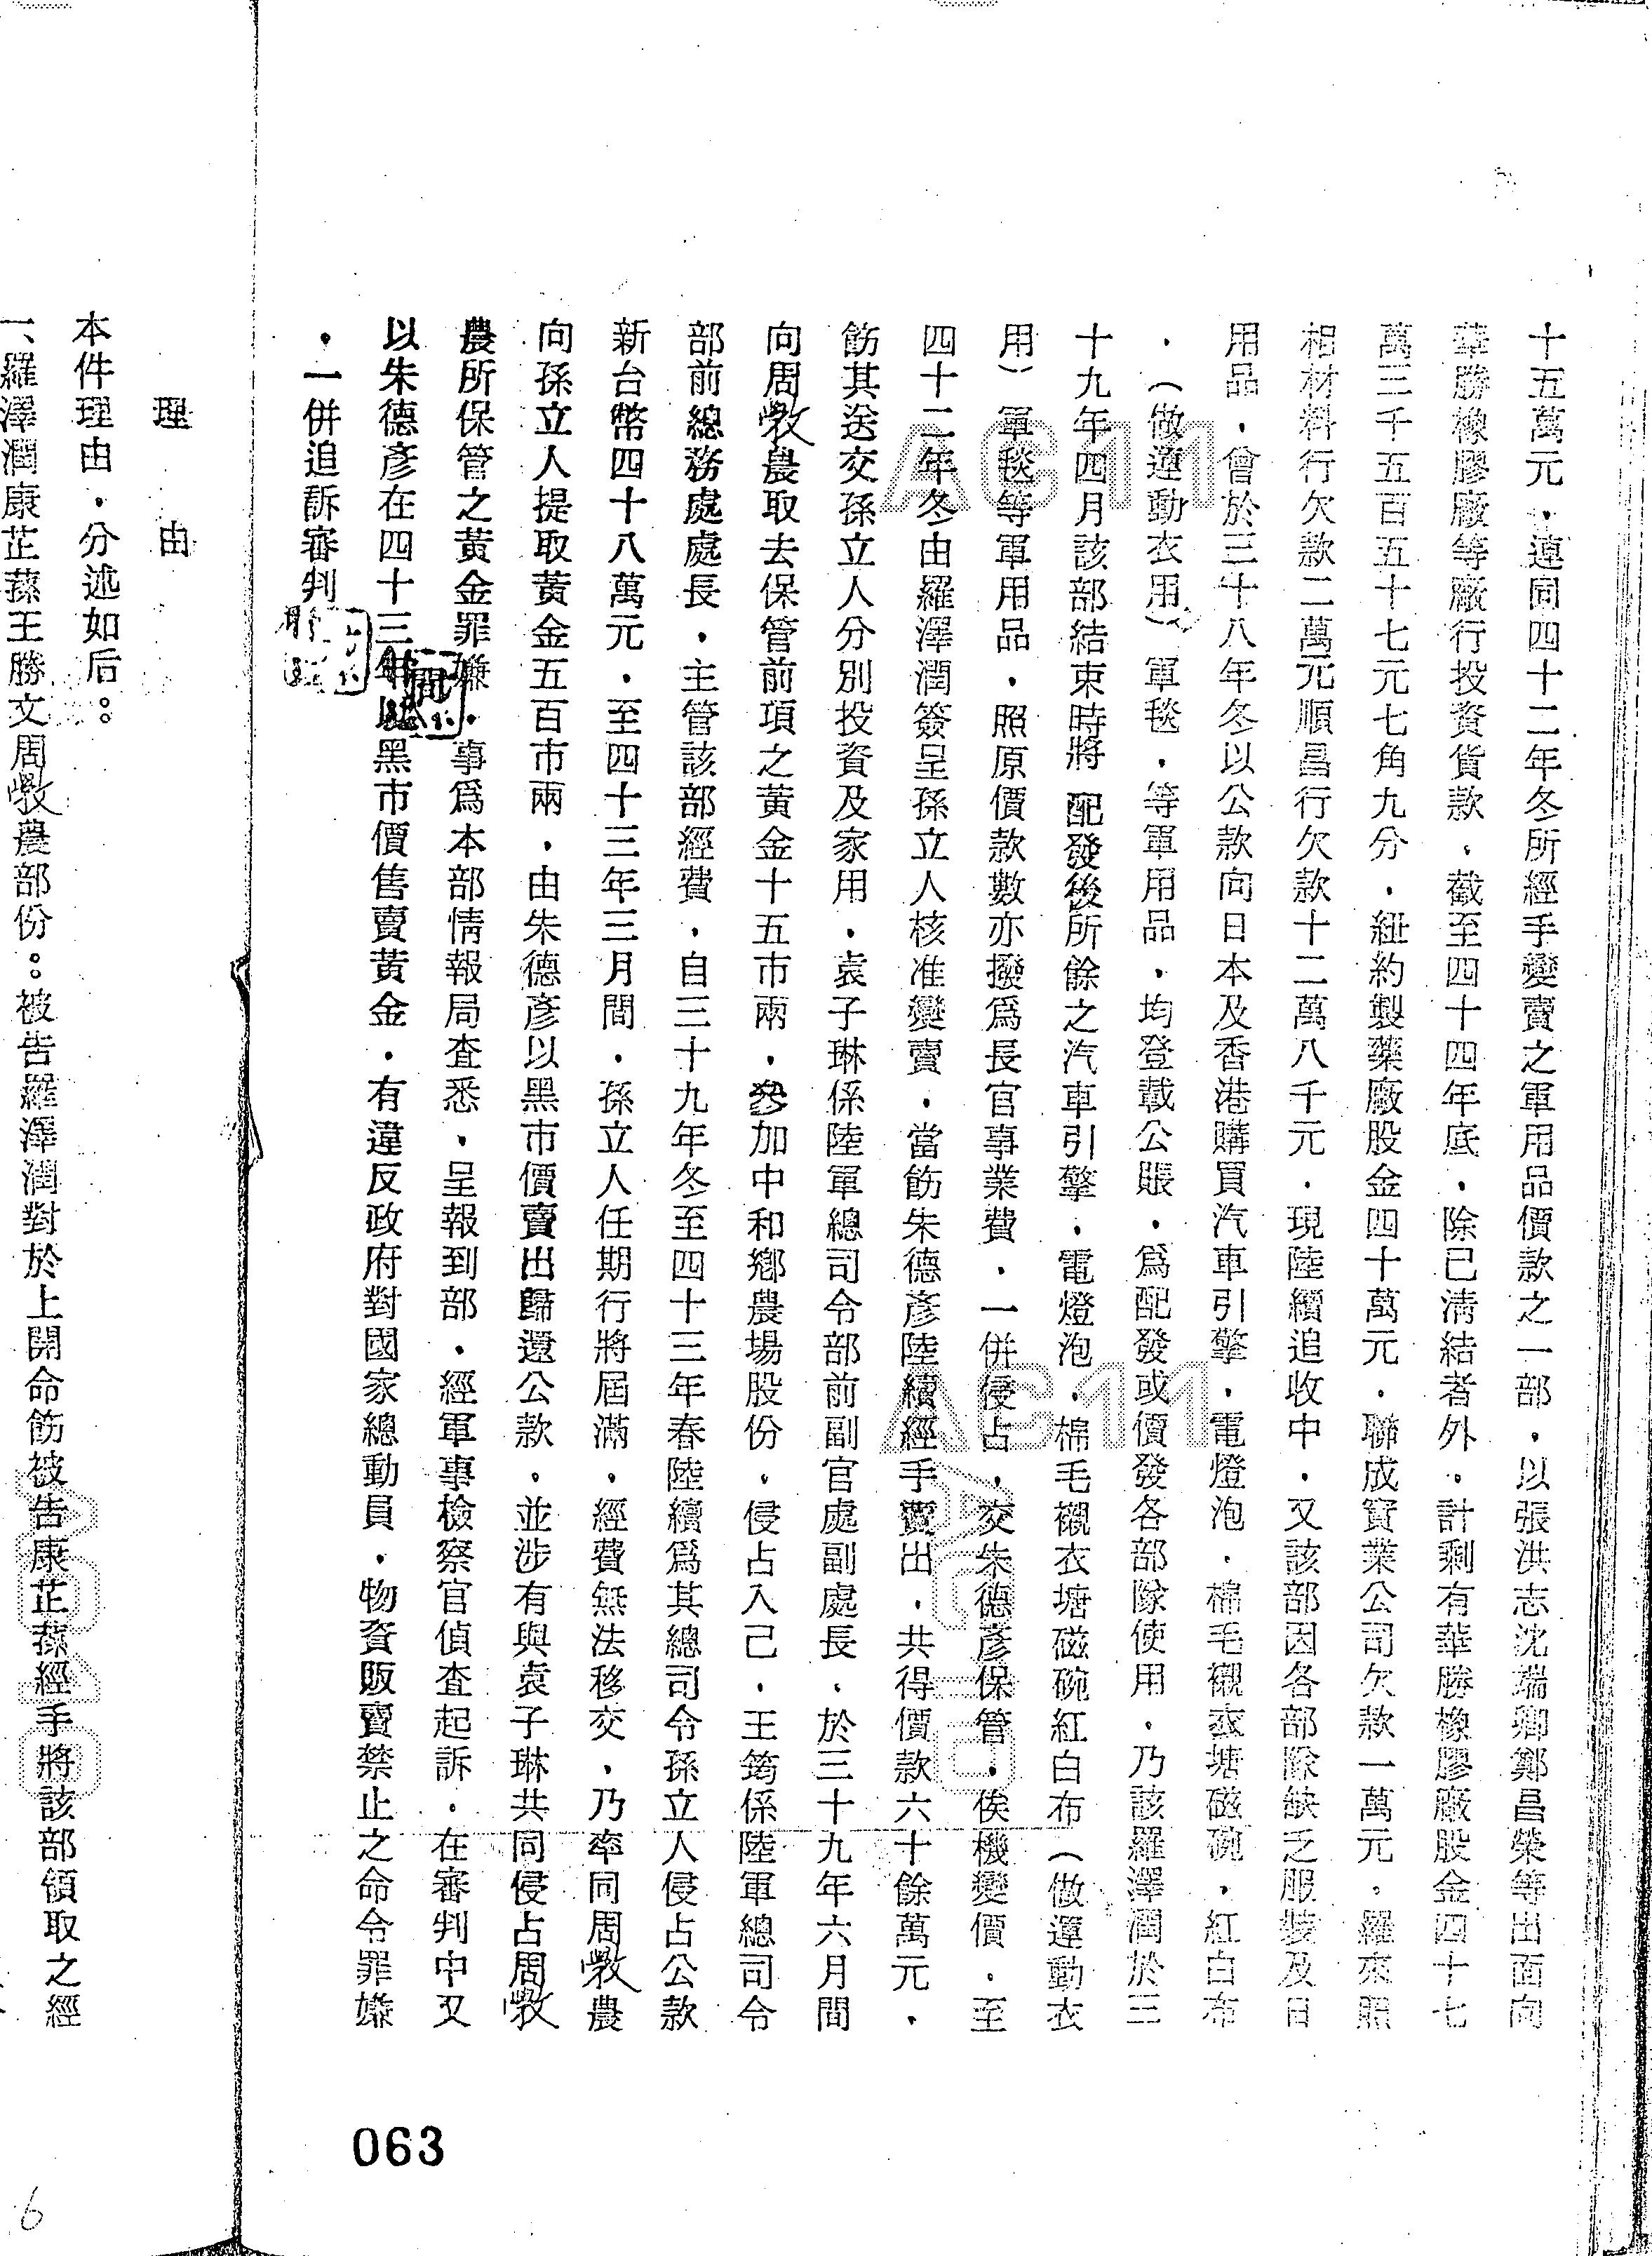 十五萬元．連同四十二年冬所經手變賣之軍用品價款之一部．以張洪志沈瑞卿鄭昌榮等出面向
華勝橡膠廠等廠行投資貨款．截至四十四年底．除已清結者外．計剩有華勝橡膠廠股金四十七
萬三千五百五十七元七角九分．紐約製藥廠股金四十萬元．聯成實業公司欠款一萬元．羅來照
相材料行欠款二萬元順昌行欠款十二萬八千元．現陸續追收中．又該部因各部隊缺乏服裝及日
用品．曾於三十八年冬以公款向日本及香港購買汽車引擎．電燈泡．棉毛襯衣塘磁碗．紅白布
．（做運動衣用）軍毯．等軍用品．均登載公賬．爲配發或價發各部隊使用．乃該羅澤潤於三
十九年四月該部結束時將配發後所餘之汽車引擎．電燈泡．棉毛襯衣塘磁碗紅白布（做運動衣
用）軍毯等軍用品．照原價款數亦撥爲長官事業費．一併侵占．交朱德彥保管．俟機變價．至
四十二年冬由羅澤潤簽呈孫立人核准變賣．當飭朱德彥陸續經手賣出．共得價款六十餘萬元．
飭其送交孫立人分別投資及家用．袁子琳係陸軍總司令部前副官處副處長．於三十九年六月間
向周斆農取去保管前項之黃金十五市兩．參加中和鄉農場股份．侵占入己．王筠係陸軍總司令
部前總務處處長．主管該部經費．自三十九年冬至四十三年春陸續爲其總司令孫立人侵占公款
新台幣四十八萬元．至四十三年三月間．孫立人任期行將屆滿．經費無法移交．乃率同周斆農
向孫立人提取黃金五百市兩．由朱德彥以黑市價賣出歸還公款．並涉有與袁子琳共同侵占周斆
農所保管之黃金罪嫌．事爲本部情報局查悉．呈報到部．經軍事檢察官偵查起訴．在審判中又
以朱德彥在四十三年間以黑市價售賣黃金．有違反政府對國家總動員．物資販賣禁止之命令罪嫌
．一併追訴審判
理由
本件理由．分述如后：
一、羅澤潤康芷蓀王勝文周斆農部份：被告羅澤潤對於上開命飭被告康芷蓀經手將該部領取之經
063
6
AC11
AC11